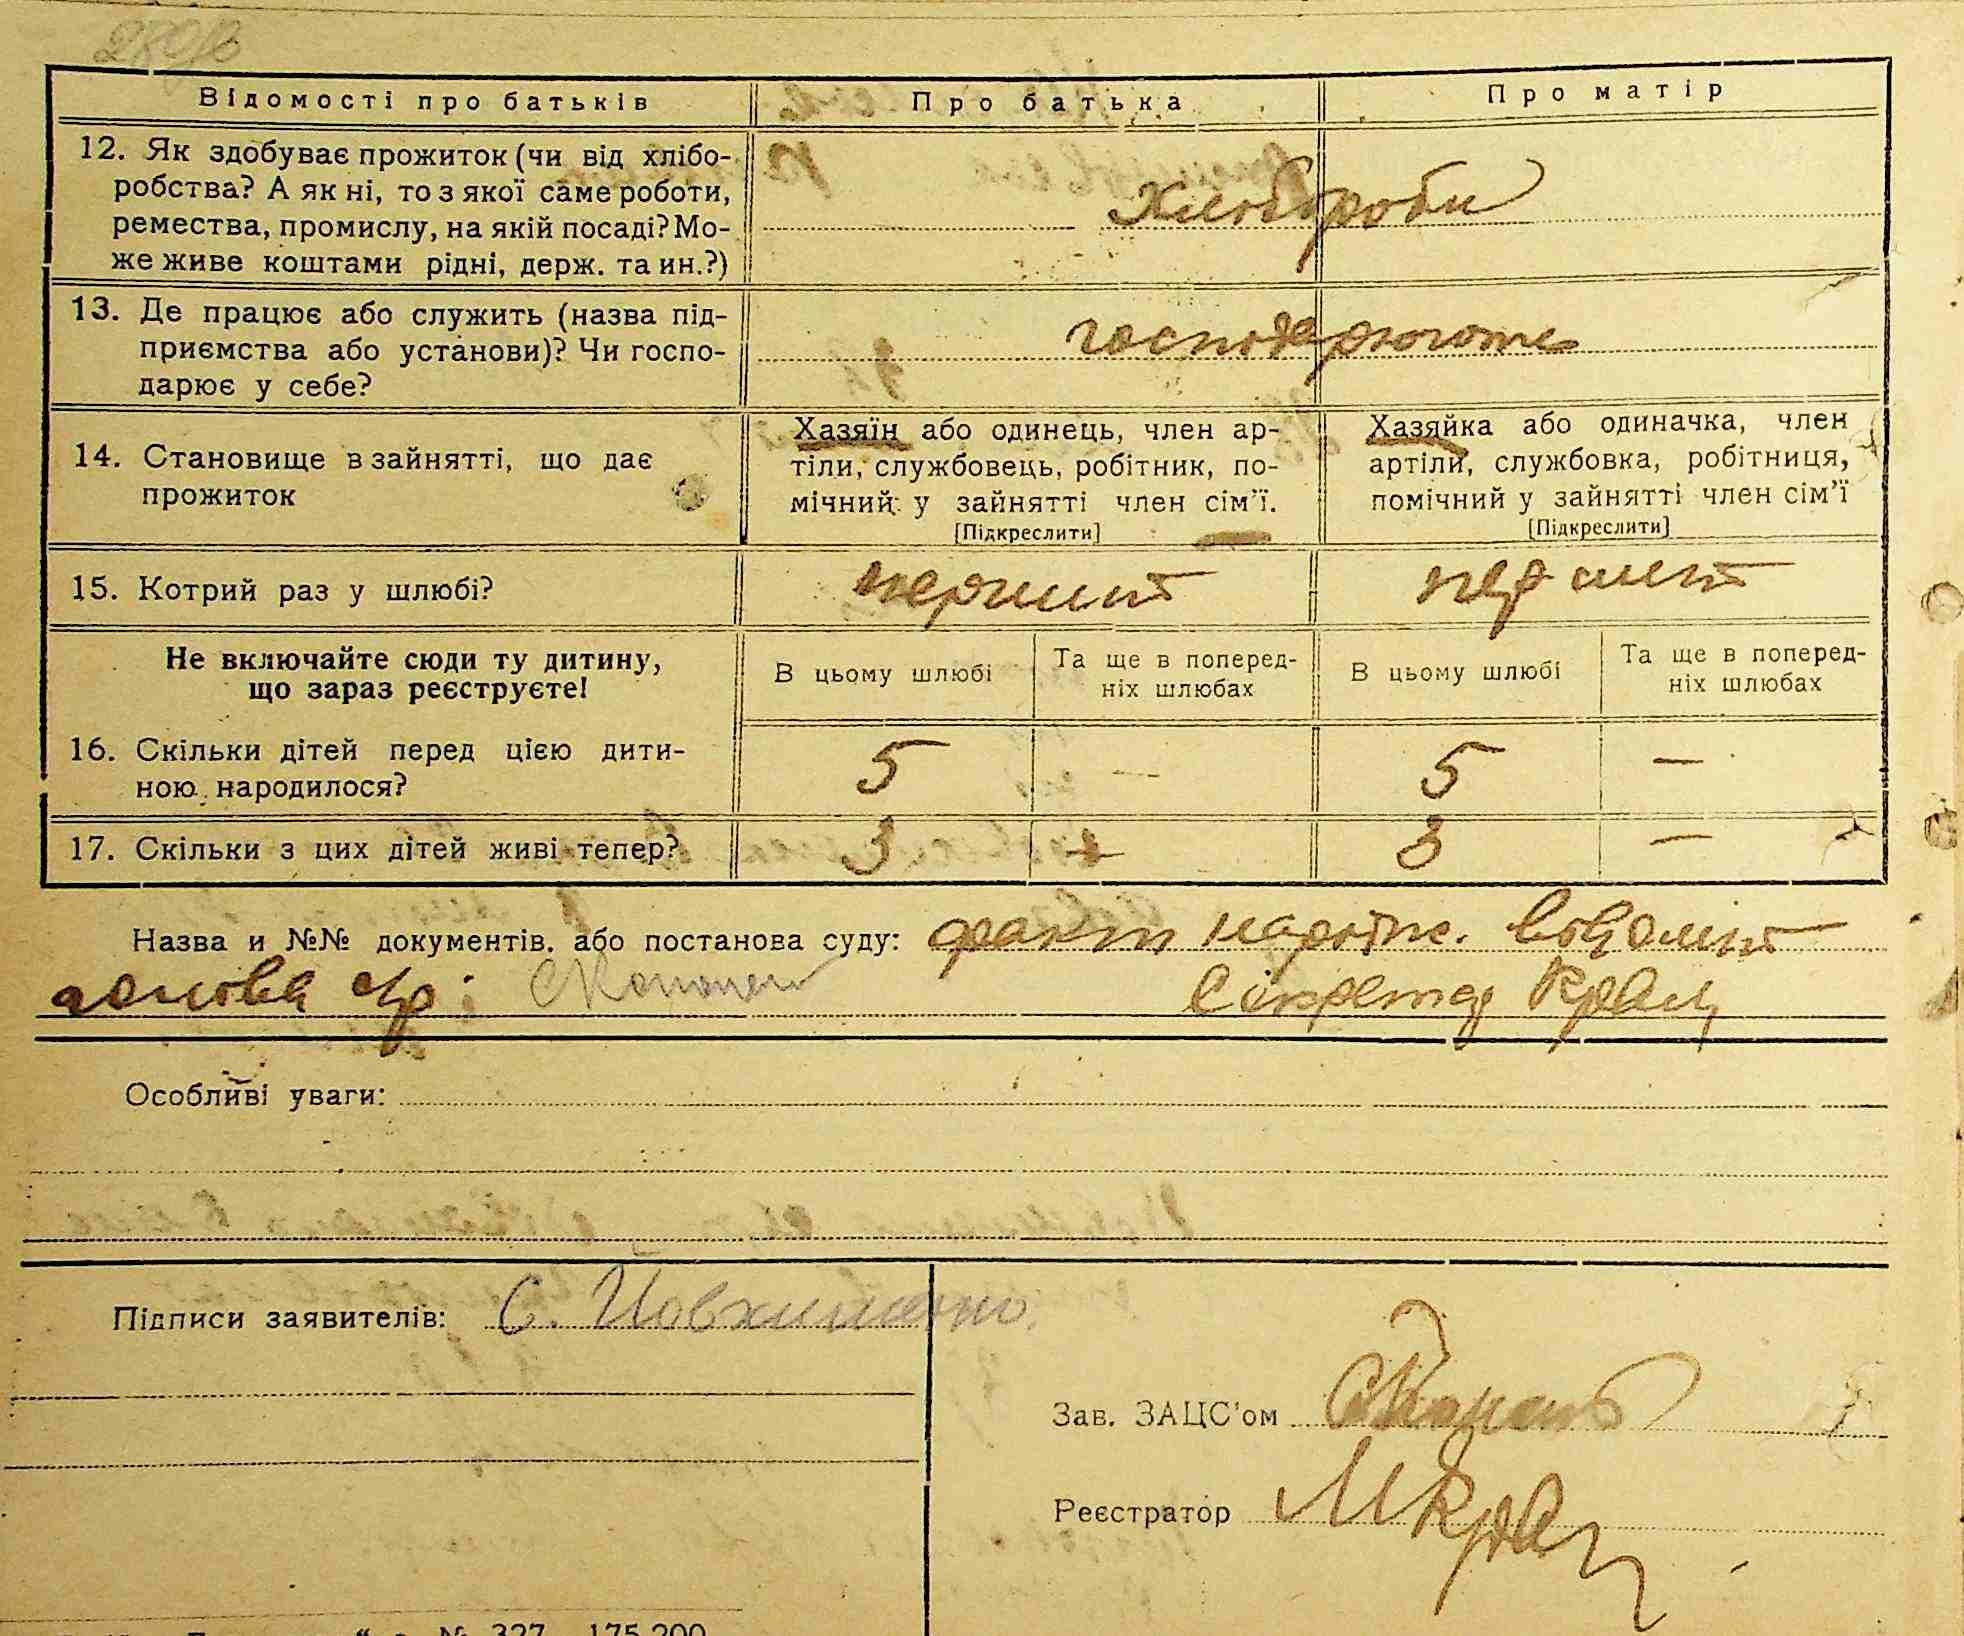 Відомості про батьків Про батька Про матір
12. Як здобуває прожиток (чи від хлібо-
робства? А як ні, то з якої саме роботи,
ремества, промислу, на якій посаді? Мо-
же живе коштами рідні, держ. та ин.?)
Хлібороби
13. Де працює або служить (назва під-
приємства або установи)? Чи госпо-
дарює у себе?
14. Становище в зайнятті, що дає
прожиток
Хазяїн або одинець, член ар-
тіли, службовець, робітник, по-
мічний у зайнятті член сім'ї.
[Підкреслити]
Хазяйка або одиначка, член
артіли, службовка, робітниця,
помічний у зайнятті член сім'ї
[Підкреслити]
15. Котрий раз у шлюбі?
перший перший
Не включайте сюди ту дитину,
що зараз реєструєте!
В цьому шлюбі
Та ще в поперед-
ніх шлюбах
В цьому шлюбі
Та ще в поперед-
ніх шлюбах
16. Скільки дітей перед цією дити-
ною народилося?
5 — 5 —
17. Скільки з цих дітей живі тепер?
3 3 —
Назва и №№ документів. або постанова суду: факт
голова с/р: Секретар
Особливі уваги:
Підписи заявителів: С.
Зав. ЗАЦС'ом
Реєстратор
№ 327 175.200